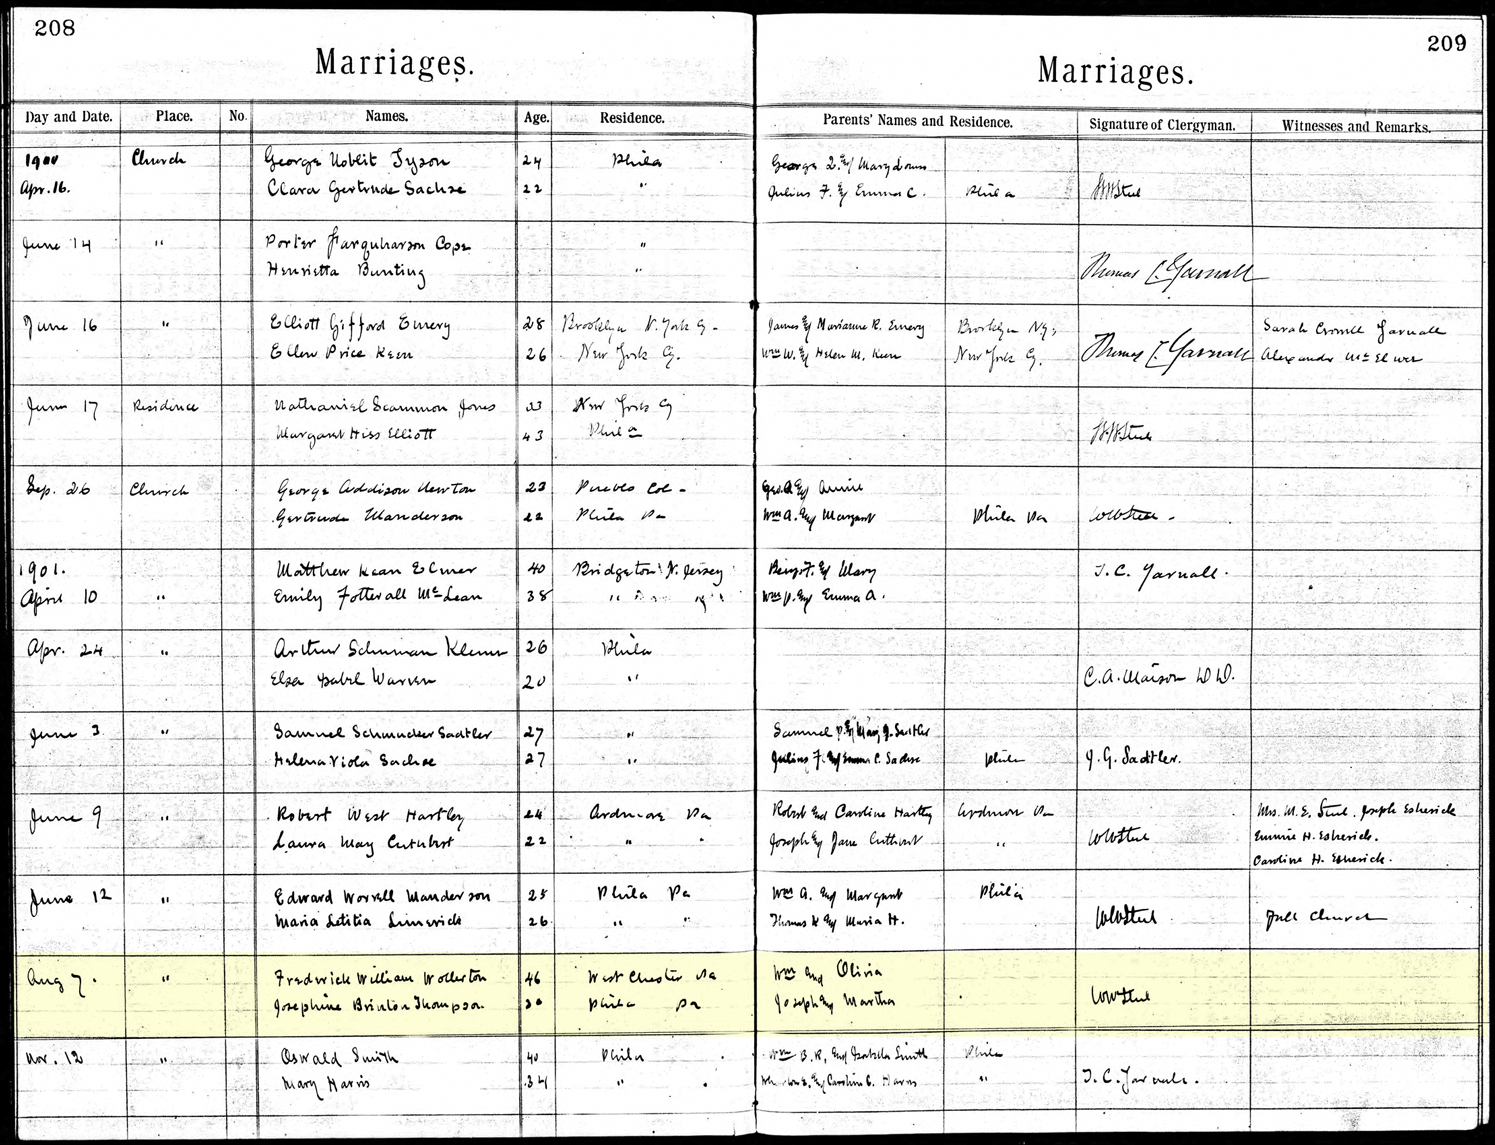 208
Marriages.
Day and Date. Place. No. Names. Age. Residence.
1900 Church George Noblit Tyson 24 Phila
Apr. 16. Clara Gertrude Sachse 22 "
June 14 " Porter Farquharson Cope "
Henrietta Bunting "
June 16 " Elliott Gifford Emery 28 Brooklyn N. York
Ellen Price Keen 26 New York
June 17 Residence Nathaniel Scammon Jones New York
Margaret Hiss Elliott 43 Phila
Sep. 26 Church George Addison Newton 23 Pueblo Col -
Gertrude Manderson 22 Phila Pa
1901. Matthew Kean Elmer 40 Bridgeton N. Jersey
April 10 " Emily Fotterall McLean 38 "
Apr. 24 " Arthur Schuman Klemm 26 Phila
Elsa Isabel Warren 20 "
June 3 " Samuel Schmucker Sadtler 27 "
Helena Viola Sachse 27 "
June 9 " Robert West Hartley 24 Ardmore Pa
Laura May Cuthbert 22 " "
June 12 " Edward Worrell Manderson 25 Phila Pa
Maria Letitia Limerick 26 " "
Aug 7. " Frederick William Wollerton 46 West Chester Pa
Josephine Brinton Thompson Phila Pa
Nov. 12 " Oswald Smith 40 Phila
Mary Harris 34 "
209
Marriages.
Parents' Names and Residence. Signature of Clergyman. Witnesses and Remarks.
George
Julius F. & Emma C. Phila WWSteel
Thomas C. Yarnall
James & Marianne R. Emery Brooklyn Sarah Yarnall
Wm W. & Helen M. Keen New York Thomas C. Yarnall Alexander
WWSteel
Geo. A & Annie
Wm A. & Margaret Phila Pa WWSteel -
Benj. F. & Mary T. C. Yarnall.
Wm & Emma A.
C. A. Maison D D.
Samuel P. & Mary J. Sadtler
Julius F. & Emma C. Sachse Phila J. G. Sadtler.
Robert and Caroline Hartley Ardmore Pa Mrs. M. E. Steel. Joseph Esherick
Joseph & Jane Cuthbert " WWSteel Emmie H. Esherick.
Caroline H. Esherick.
Wm A. and Margaret Phila
Thomas K & Maria H. WWSteel Full Church
Wm and Olivia
Joseph & Martha WWSteel
Wm B. R. and Isabella Smith Phila
& Caroline C. Harris " T. C. Yarnall.